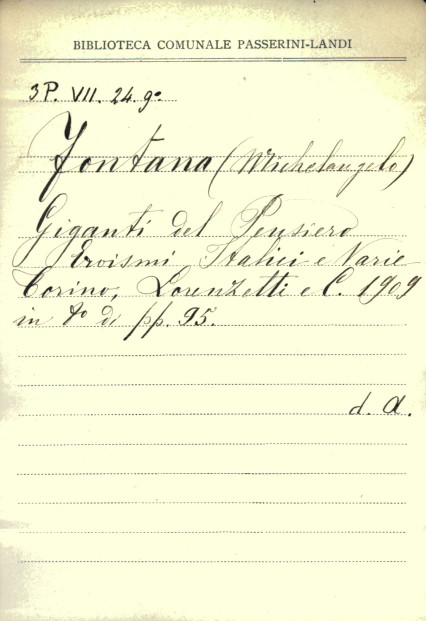 BIBLIOTECA COMUNALE PASSERINI-LANDI
3P. VII. 24. 9º
Fontana (Michelangelo)
Giganti del Pensiero
Eroismi Italici e Varie
Torino, Lorenzetti e C. 1909
in 8º di pp. 95.
d. A.